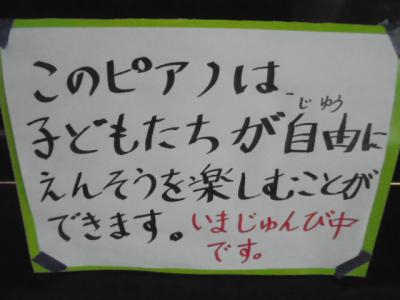 このピアノは
じゆう
子どもたちが自由に
えんそうを楽しむことが
できます。いまじゅんび中
です。